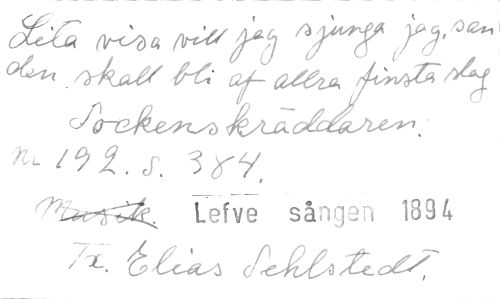 Lita visa vill jag sjunga jag, san
den skall bli af allra finsta slag
Sockenskräddaren.
Nr 192. S. 384.
Musik. Lefve sången 1894
Tx. Elias Sehlstedt.